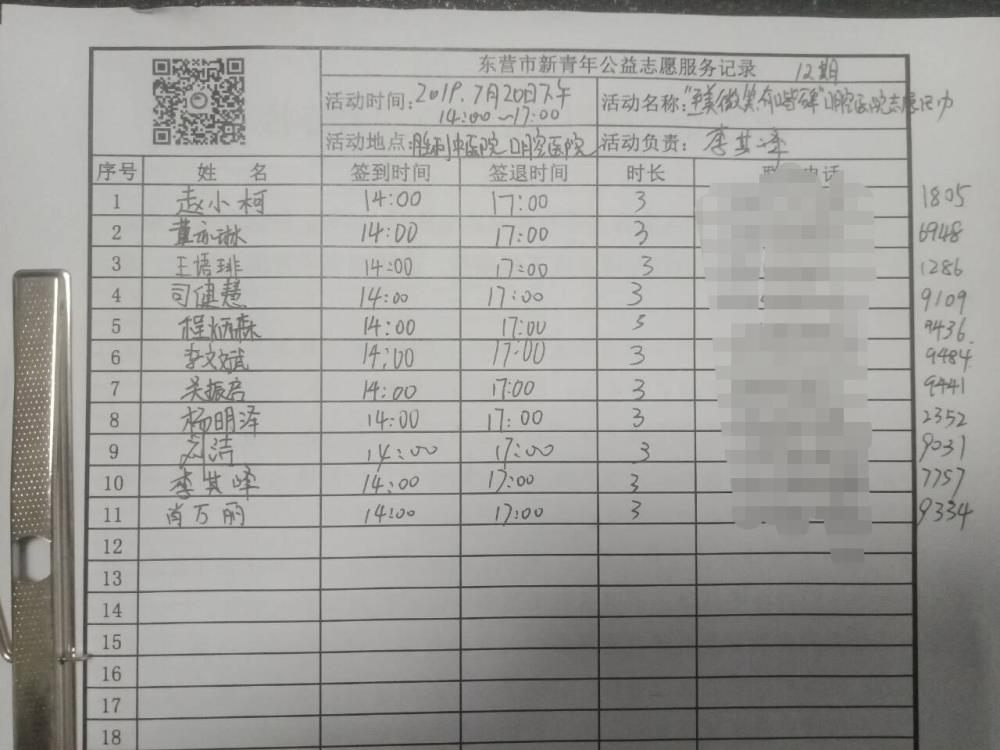 东营市新青年公益志愿服务记录 12期
活动时间:2019.7月20日下午 14:00~17:00
活动名称:微笑有 口腔医院志愿
活动地点: 医院 口腔医院
活动负责:李其峰
序号 姓 名 签到时间 签退时间 时长 电话
1 赵小柯 14:00 17:00 3 1805
2 董亦琳 14:00 17:00 3 6948
3 王语琲 14:00 17:00 3 1286
4 司健慧 14:00 17:00 3 9109
5 程炳森 14:00 17:00 3 9436
6 李文斌 14:00 17:00 3 9484
7 吴振启 14:00 17:00 3 9441
8 杨明泽 14:00 17:00 3 2352
9 刘洁 14:00 17:00 3 9031
10 李其峰 14:00 17:00 3 7757
11 肖万丽 14:00 17:00 3 9334
12
13
14
15
16
17
18